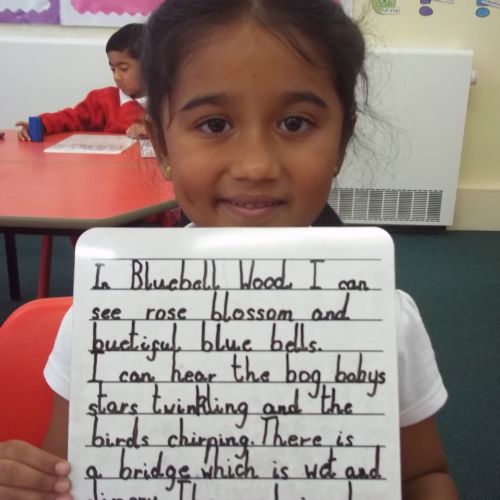 In Bluebell Wood, I can
see rose blossom and
buetiful blue bells.
I can hear the bog babys
stars twinkling and the
birds chirping. There is
a bridge which is wet and